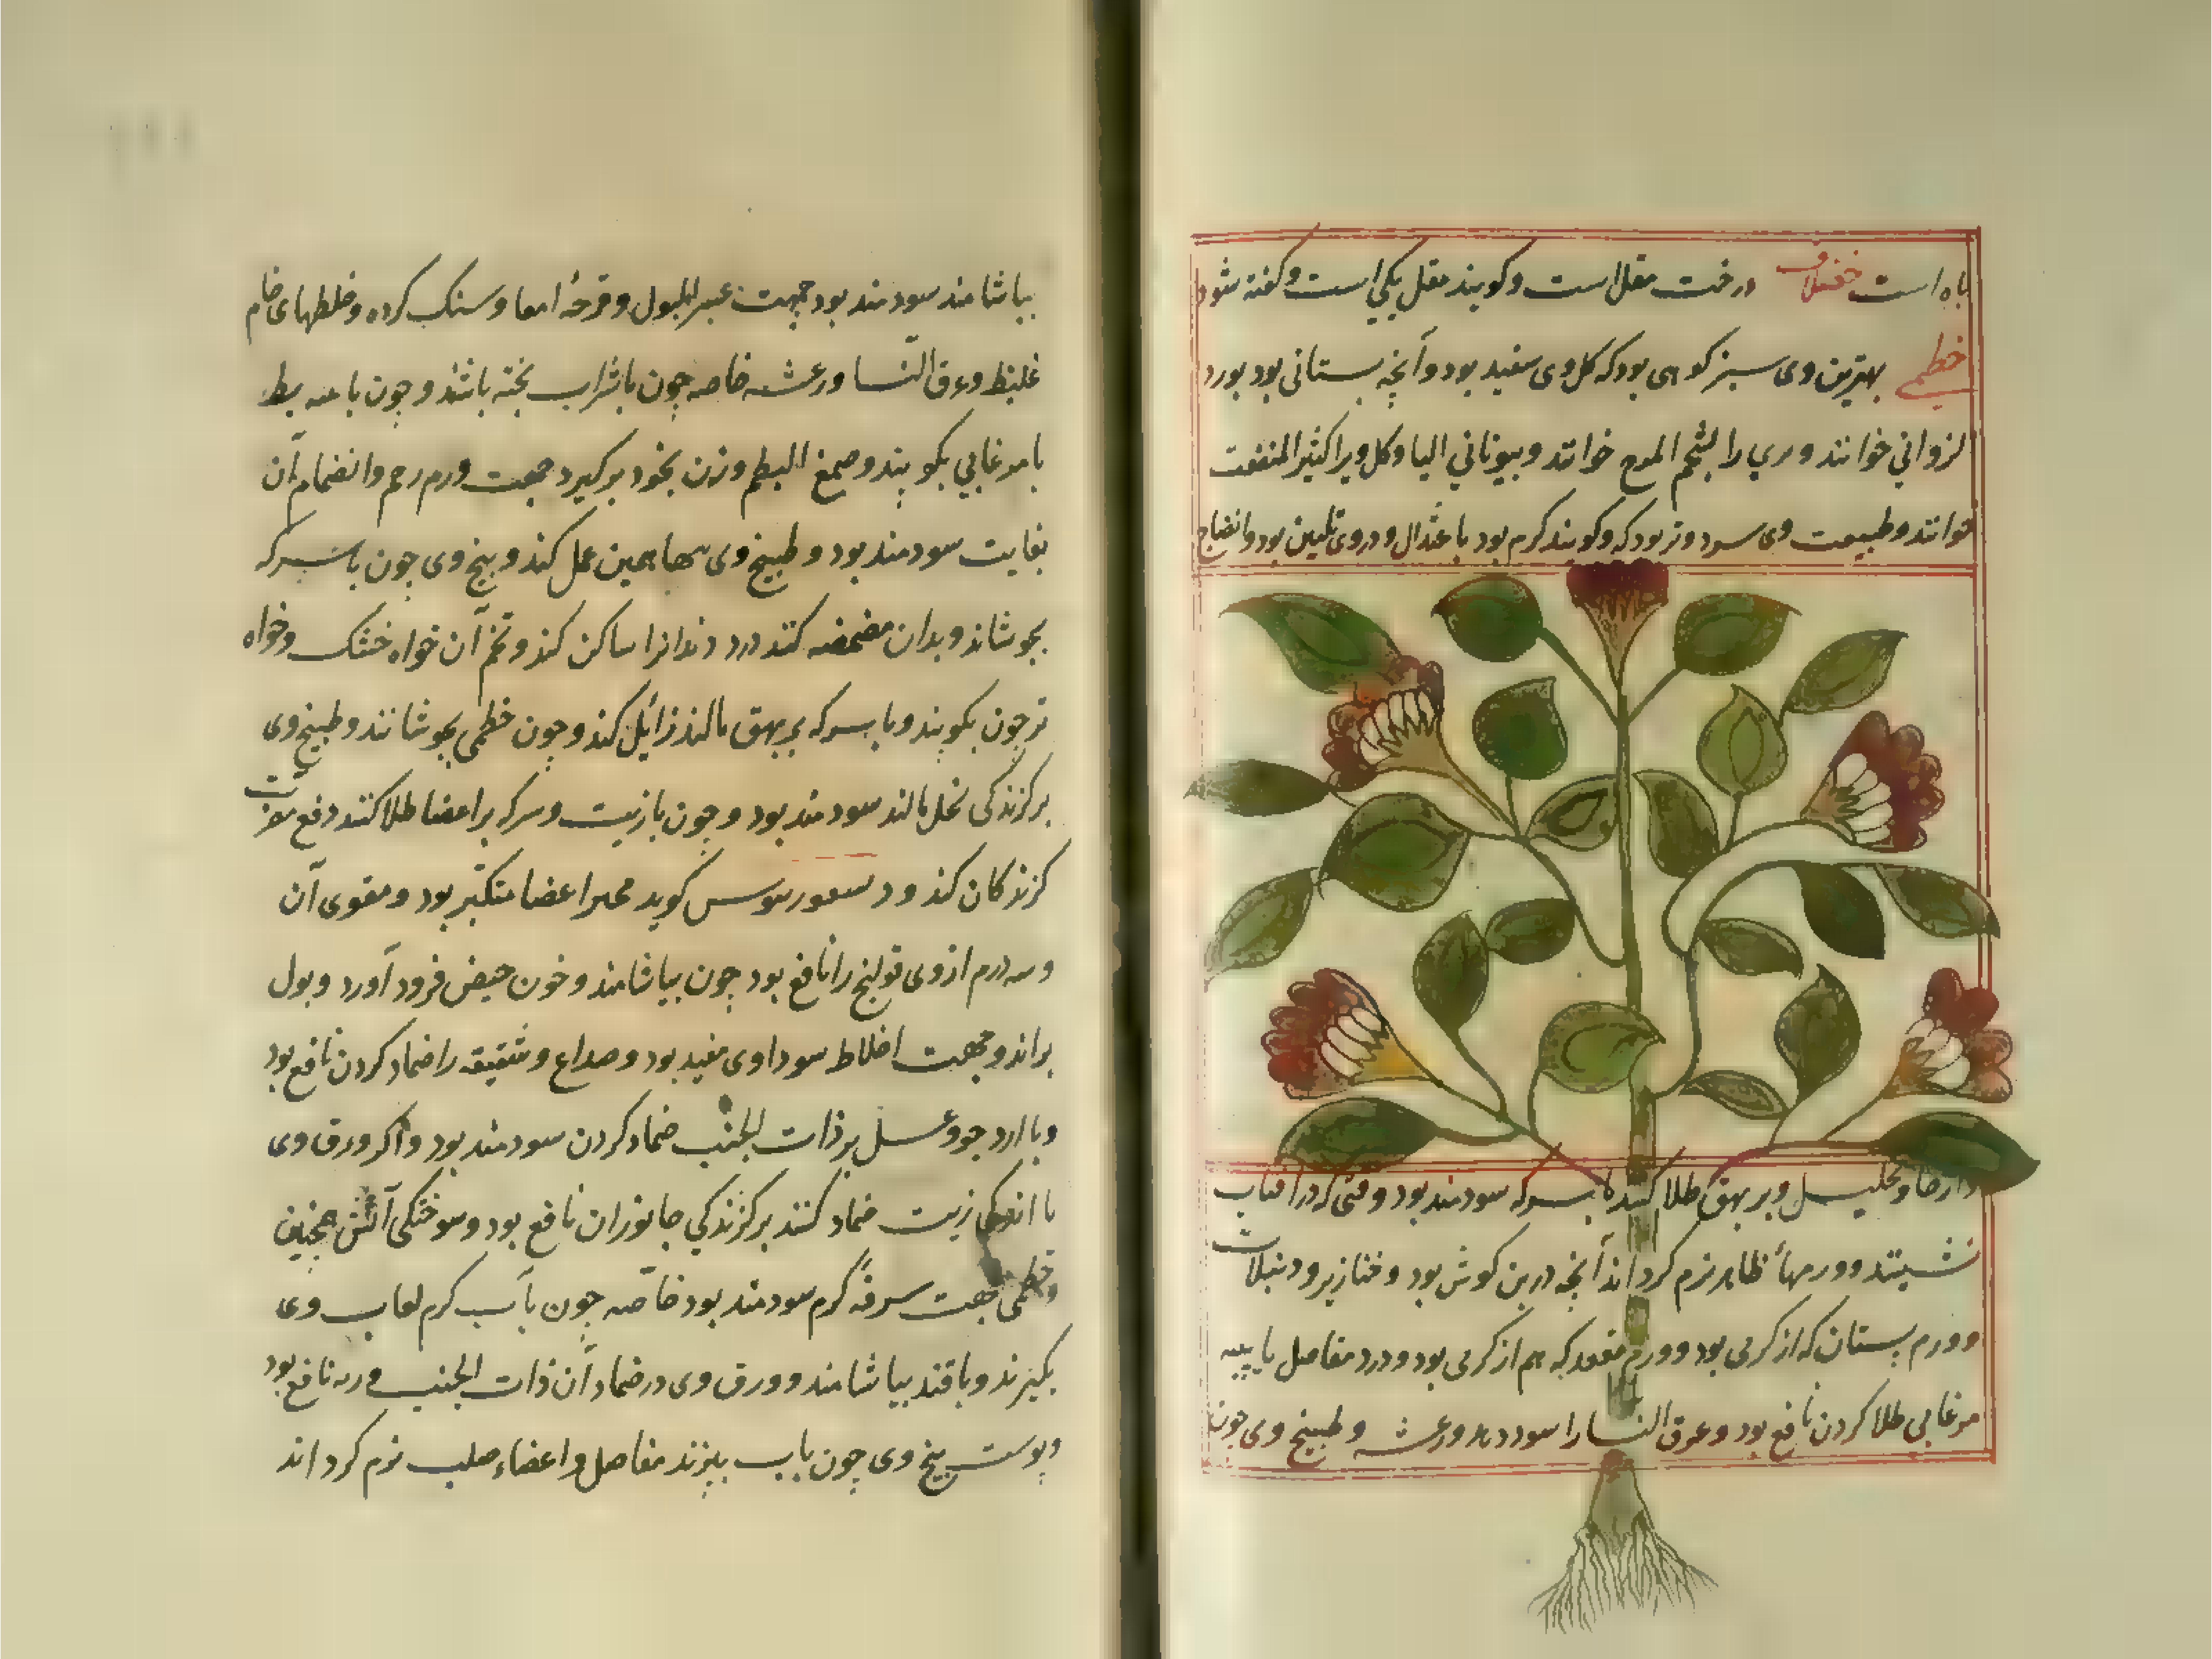 باه است خفشلاف درخت مقل است وکویند مقل یکی است وکفته شود
خطمی بهترین وی سبز کوهی بود که کل وی سفید بود وآنچه بستانی بود بورد
لزوانی خوانند و بری را لشحم المرع خوانند وبیونانی الیا وکل ویرا کثیر المنفعت
خوانند وطبیعت وی سرد و تر بود که وکویند کرم بود باعتدال ودر وی تلیین بود وانضاج
وارخا وتحلیل وبر بهق طلا کنند با سرکه سودمند بود وقتی که در افتاب
نشینند وورمهاء ظاهر نرم کرداند آنچه در بن کوش بود وخنازیر ودنبلات
وورم پستان که از کرمی بود وورم مقعد که هم از کرمی بود ودرد مفاصل با پیه
مرغابی طلا کردن نافع بود وعرق النسا را سود دهد ورعشه وطبیخ وی چون
بیاشامند سودمند بود جهت عسر البول وقرحهٔ امعا وسنک کرده وخلطهای خام
غلیظ وعرق النسا ورعشه خاصه چون باشراب پخته باشند وچون با پیه بط
یا مرغابی بکوبند وصمغ البطم وزن بخود برکیرد جهت ورم رحم وانضمام آن
بغایت سودمند بود وطبیخ وی تنها همین عمل کند وبیخ وی چون با سرکه
بجوشاند وبدان مضمضه کنند درد دندانرا ساکن کند وتخم آن خواه خشک وخواه
تر چون بکوبند وبا سرکه بر بهق مالند زائل کند وچون خطمی بجوشانند وطبیخ وی
بر کزندکی نحل مالند سودمند بود وچون بازیت وسرکه بر اعضا طلا کنند دفع مضرت
کزندکان کند و کوید اعضا بود ومقوی آن
وسه درم از وی قولنج را نافع بود چون بیاشامند وخون حیض فرود آورد وبول
براند وجهت اخلاط سوداوی مفید بود وصداع وشقیقه را ضماد کردن نافع بود
وبا ارد جو وعسل بر ذات الجنب ضماد کردن سودمند بود واکر ورق وی
با اندکی زیت ضماد کنند بر کزندکی جانوران نافع بود وسوختکی آتش همچنین
وخطمی جهت سرفهٔ کرم سودمند بود خاصه چون بآب کرم لعاب وی
بکیرند وباقند بیاشامند وورق وی در ضماد آن ذات الجنب وریه نافع بود
وپوست بیخ وی چون باب بپزند مفاصل واعضاء صلب نرم کرداند